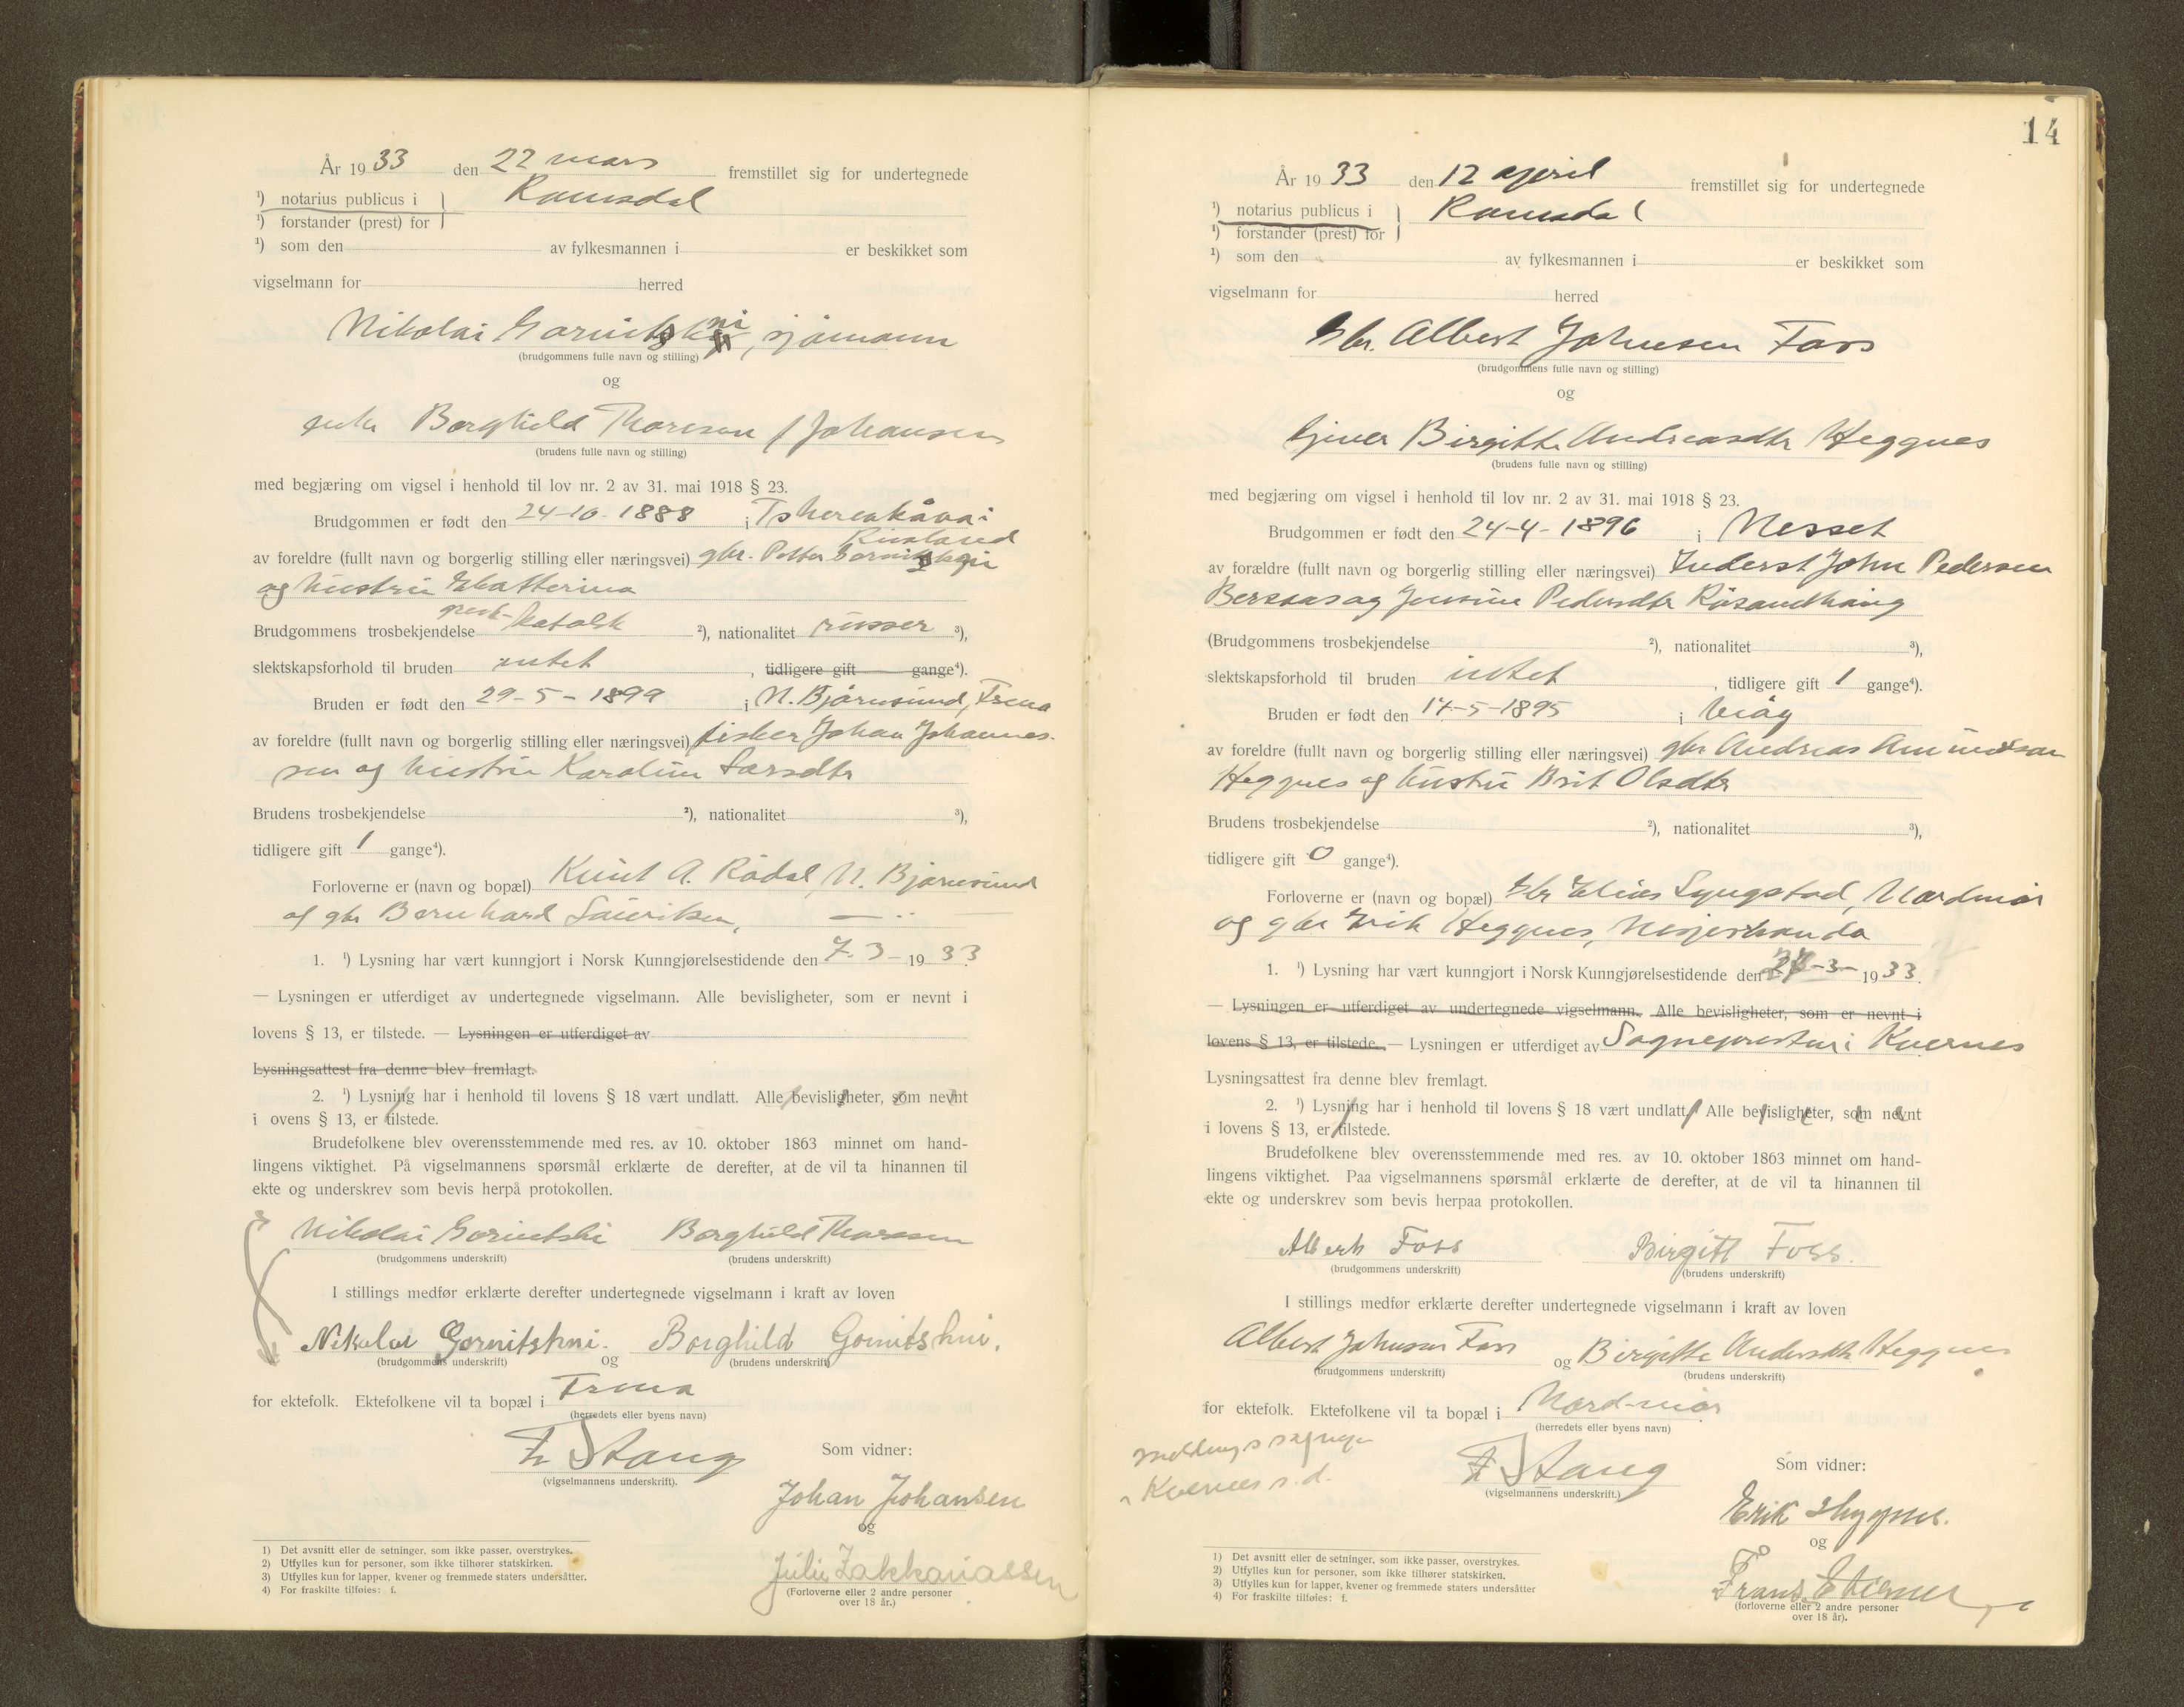 År 1933 den 22 mars fremstillet sig for undertegnede
¹) notarius publicus i } Romsdal
¹) forstander (prest) for
¹) som den av fylkesmannen i er beskikket som
vigselmann for herred
Nikolai Gornitskni, sjømann
(brudgommens fulle navn og stilling)
og
enke Borghild Thoresen f Johansen
(brudens fulle navn og stilling)
med begjæring om vigsel i henhold til lov nr. 2 av 31. mai 1918 § 23.
Brudgommen er født den 24-10-1888 i
Russland
av foreldre (fullt navn og borgerlig stilling eller næringsvei) gbr. Petter
og hustru Ekatterina
Brudgommens trosbekjendelse gresk-katolsk ²), nationalitet russer ³),
slektskapsforhold til bruden intet , tidligere gift gange⁴).
Bruden er født den 29-5-1899 i N. Bjørnsund, Frena
av foreldre (fullt navn og borgerlig stilling eller næringsvei) fisker Johan Johannes-
sen og hustru Karoline Larsdtr
Brudens trosbekjendelse ²), nationalitet ³),
tidligere gift 1 gange⁴).
Forloverne er (navn og bopæl) Knut A. Rødal, N. Bjørnsund
og gbr Bernhard — " —
1. ¹) Lysning har vært kunngjort i Norsk Kunngjørelsestidende den 7-3-1933.
— Lysningen er utferdiget av undertegnede vigselmann. Alle bevisligheter, som er nevnt i
lovens § 13, er tilstede. — Lysningen er utferdiget av
Lysningsattest fra denne blev fremlagt.
2. ¹) Lysning har i henhold til lovens § 18 vært undlatt. Alle bevisligheter, som nevnt
i ovens § 13, er tilstede.
Brudefolkene blev overensstemmende med res. av 10. oktober 1863 minnet om hand-
lingens viktighet. På vigselmannens spørsmål erklærte de derefter, at de vil ta hinannen til
ekte og underskrev som bevis herpå protokollen.
Nikolai Gornitski Borghild Thoresen
(brudgommens underskrift) (brudens underskrift)
I stillings medfør erklærte derefter undertegnede vigselmann i kraft av loven
Nikolai Gornitshni. og Borghild Gornitshni.
(brudgommens underskrift) (brudens underskrift)
for ektefolk. Ektefolkene vil ta bopæl i Frena
(herredets eller byens navn)
Fr Stang
(vigselmannens underskrift).
Som vidner:
Johan Johansen
og
Julie Zakkariassen
(Forloverne eller 2 andre personer
over 18 år.)
1) Det avsnitt eller de setninger, som ikke passer, overstrykes.
2) Utfylles kun for personer, som ikke tilhører statskirken.
3) Utfylles kun for lapper, kvener og fremmede staters undersåtter.
4) For fraskilte tilføies: f.
14
År 1933 den 12 april fremstillet sig for undertegnede
¹) notarius publicus i } Romsdal
¹) forstander (prest) for
¹) som den av fylkesmannen i er beskikket som
vigselmann for herred
Gbr. Albert Johnsen Foss
(brudgommens fulle navn og stilling)
og
Birgitte Andreasdtr Heggnes
(brudens fulle navn og stilling)
med begjæring om vigsel i henhold til lov nr. 2 av 31. mai 1918 § 23.
Brudgommen er født den 24-4-1896 i Nesset
av forældre (fullt navn og borgerlig stilling eller næringsvei) Inderst John Pedersen
Bersaas og Jensine Pedersdtr Røsandhaug
(Brudgommens trosbekjendelse ²), nationalitet ³),
slektskapsforhold til bruden intet , tidligere gift 1 gange⁴).
Bruden er født den 14-5-1895 i Veøy
av foreldre (fullt navn og borgerlig stilling eller næringsvei) gbr Andreas Amundsen
Heggnes og hustru Brit Olsdtr
Brudens trosbekjendelse ²), nationalitet ³),
tidligere gift 0 gange⁴).
Forloverne er (navn og bopæl) Gbr Elias Lyngstad, Nordmør
og gbr Erik Heggnes,
1. ¹) Lysning har vært kunngjort i Norsk Kunngjørelsestidende den -3-1933.
— Lysningen er utferdiget av undertegnede vigselmann. Alle bevisligheter, som er nevnt i
lovens § 13, er tilstede. — Lysningen er utferdiget av Sognepresten i Kvernes
Lysningsattest fra denne blev fremlagt.
2. ¹) Lysning har i henhold til lovens § 18 vært undlatt. Alle bevisligheter, som nevnt
i lovens § 13, er tilstede.
Brudefolkene blev overensstemmende med res. av 10. oktober 1863 minnet om hand-
lingens viktighet. Paa vigselmannens spørsmål erklærte de derefter, at de vil ta hinannen til
ekte og underskrev som bevis herpaa protokollen.
Albert Foss Birgitt Foss.
(brudgommens underskrift) (brudens underskrift)
I stillings medfør erklærte derefter undertegnede vigselmann i kraft av loven
Albert Johnsen Foss og Birgitte Andersdtr Heggnes
(brudgommens underskrift) (brudens underskrift)
for ektefolk. Ektefolkene vil ta bopæl i Nord-mør
(herredets eller byens navn)
i Kvernes s.d.
Fr Stang
(vigselmannens underskrift.)
Som vidner:
Erik Heggnes.
og
Frans
(forloverne eller 2 andre personer
over 18 år).
1) Det avsnitt eller de setninger, som ikke passer, overstrykes.
2) Utfylles kun for personer, som ikke tilhører statskirken.
3) Utfylles kun for lapper, kvener og fremmede staters undersåtter
4) For fraskilte tilføies: f.